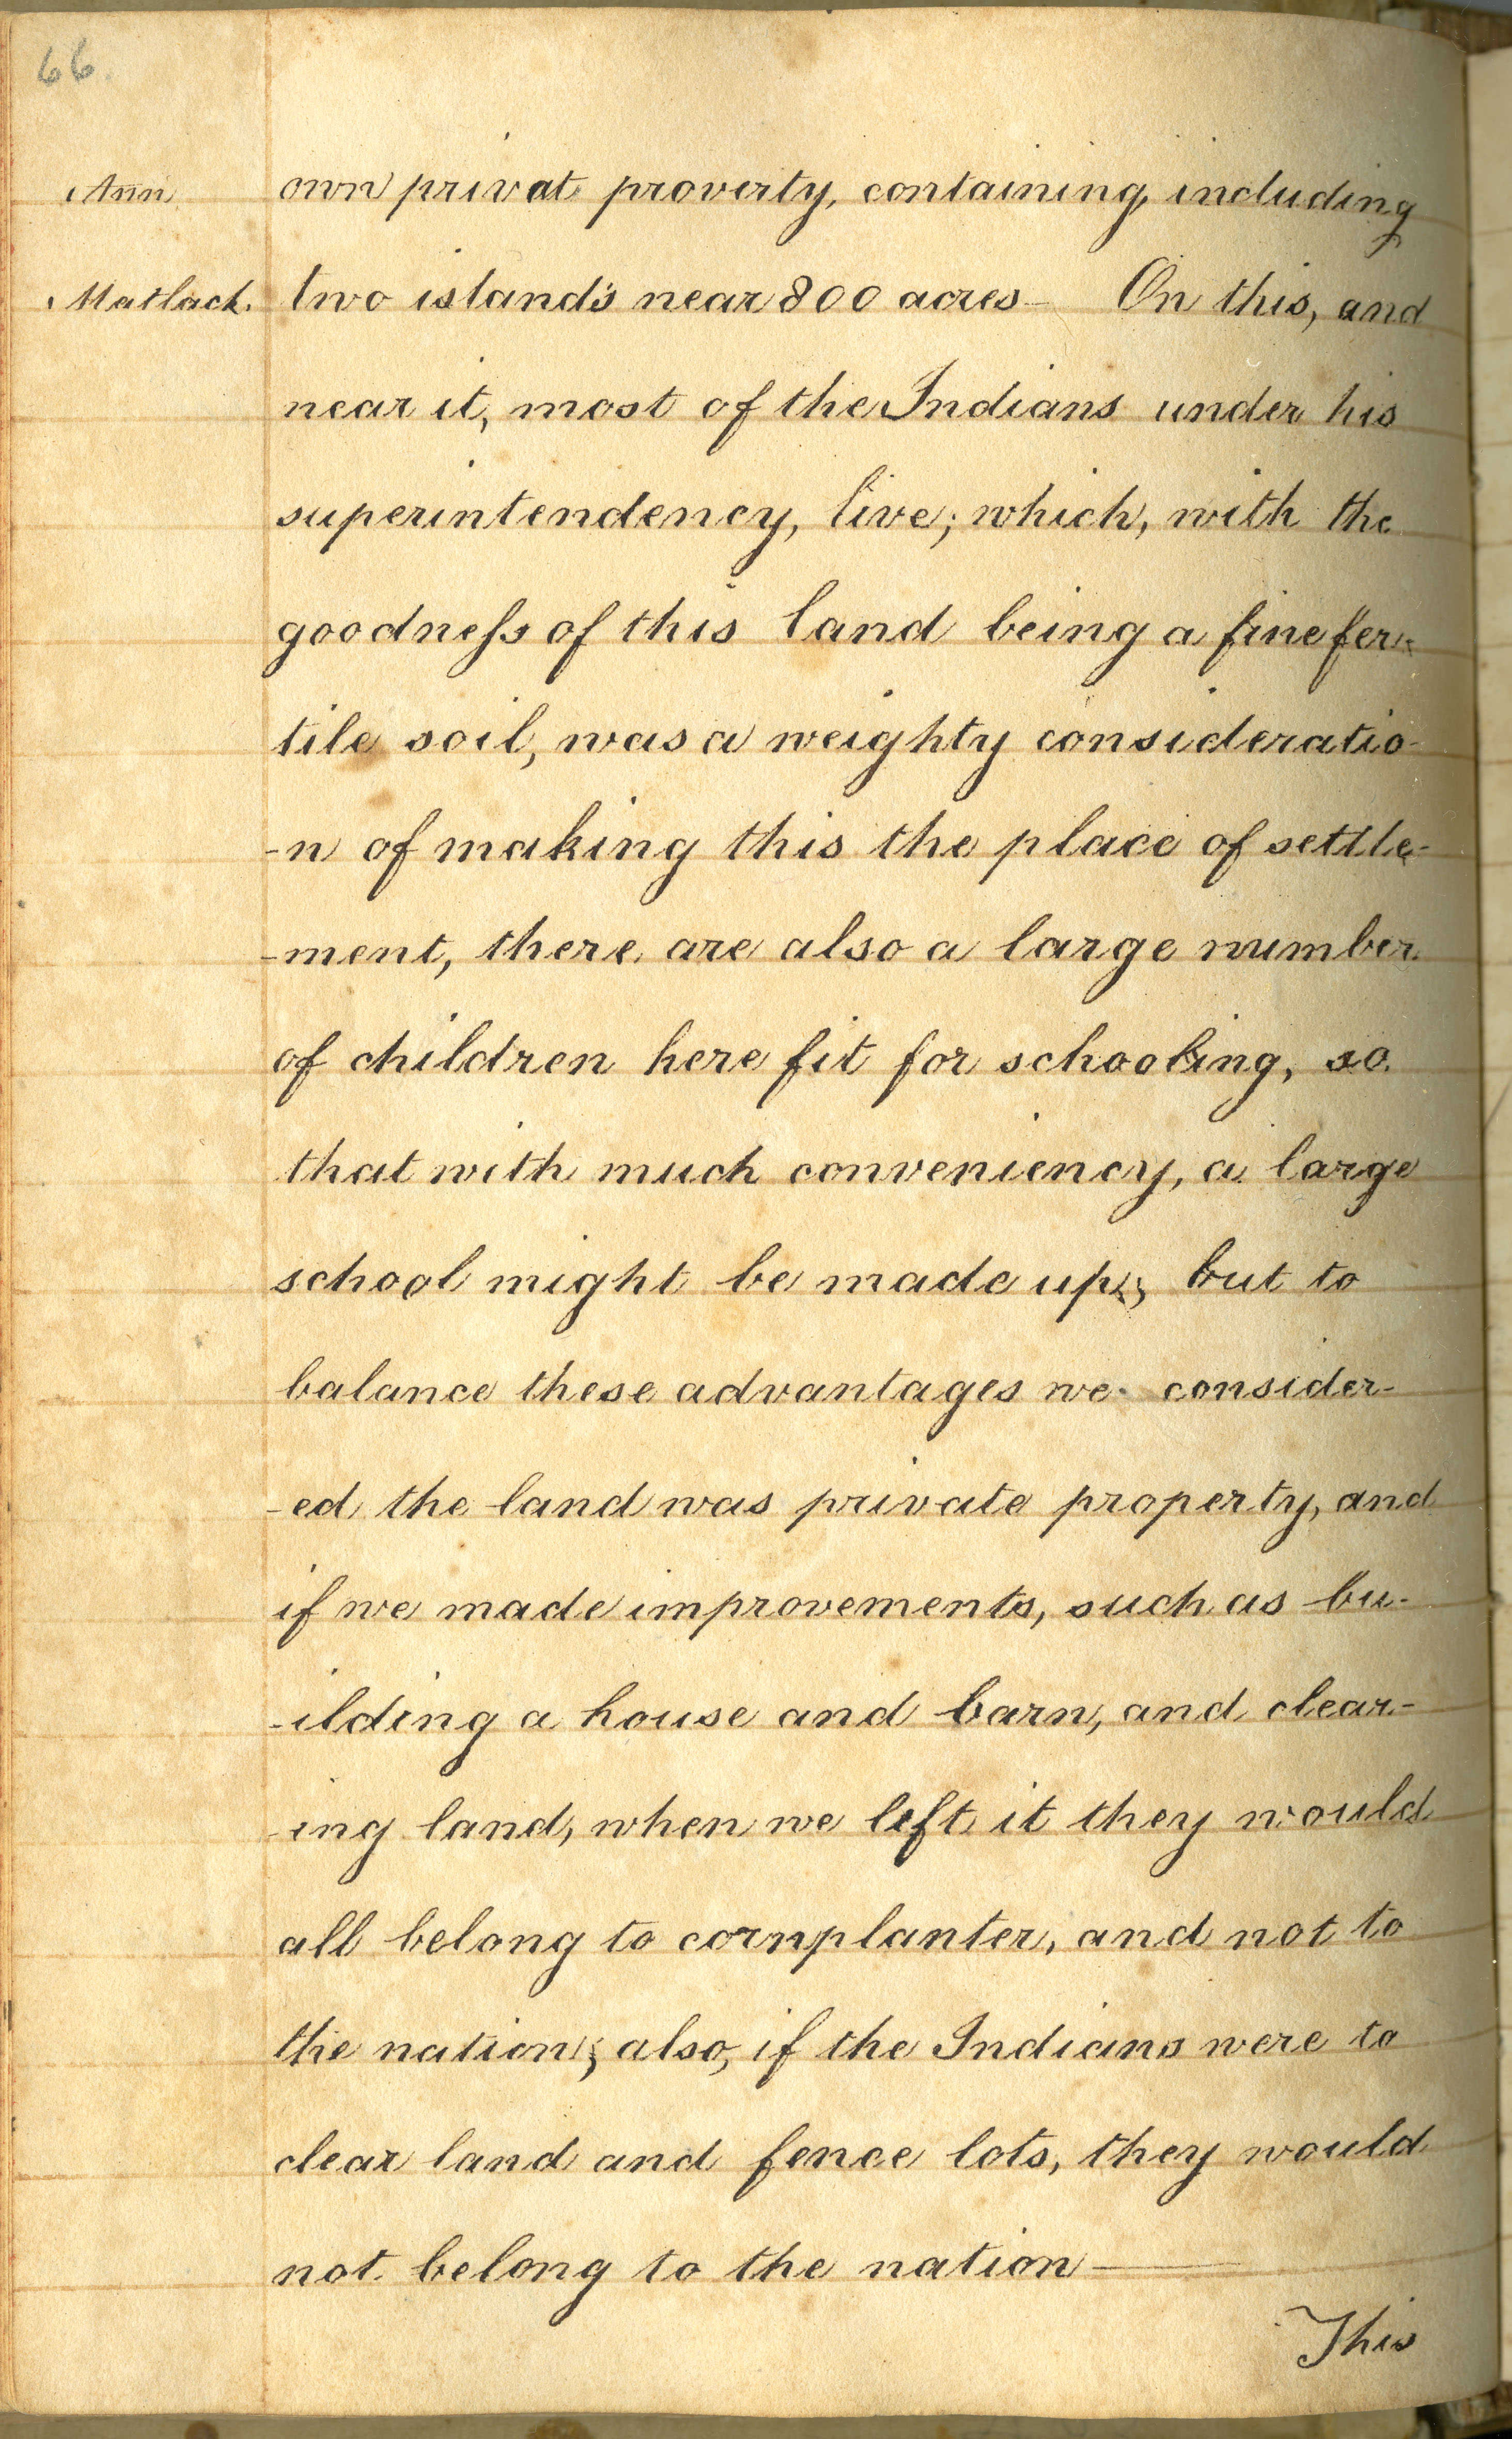 66.
Ann
own privat proverty, containing, including
Matlack.
two island's near 800 acres— On this, and
near it, most of the Indians under his
superintendency, live; which, with the
goodneſs of this land being a fine fer-
tile soil, was a weighty consideratio-
-n of making this the place of settle-
-ment, there are also a large number
of children here fit for schooling, so
that with much conveniency, a large
school might be made up; but to
balance these advantages we consider-
-ed the land was private property, and
if we made improvements, such as bu-
-ilding a house and barn, and clear-
-ing land, when we left it they would
all belong to cornplanter, and not to
the nation; also, if the Indians were to
clear land and fence lots, they would
not belong to the nation—
This